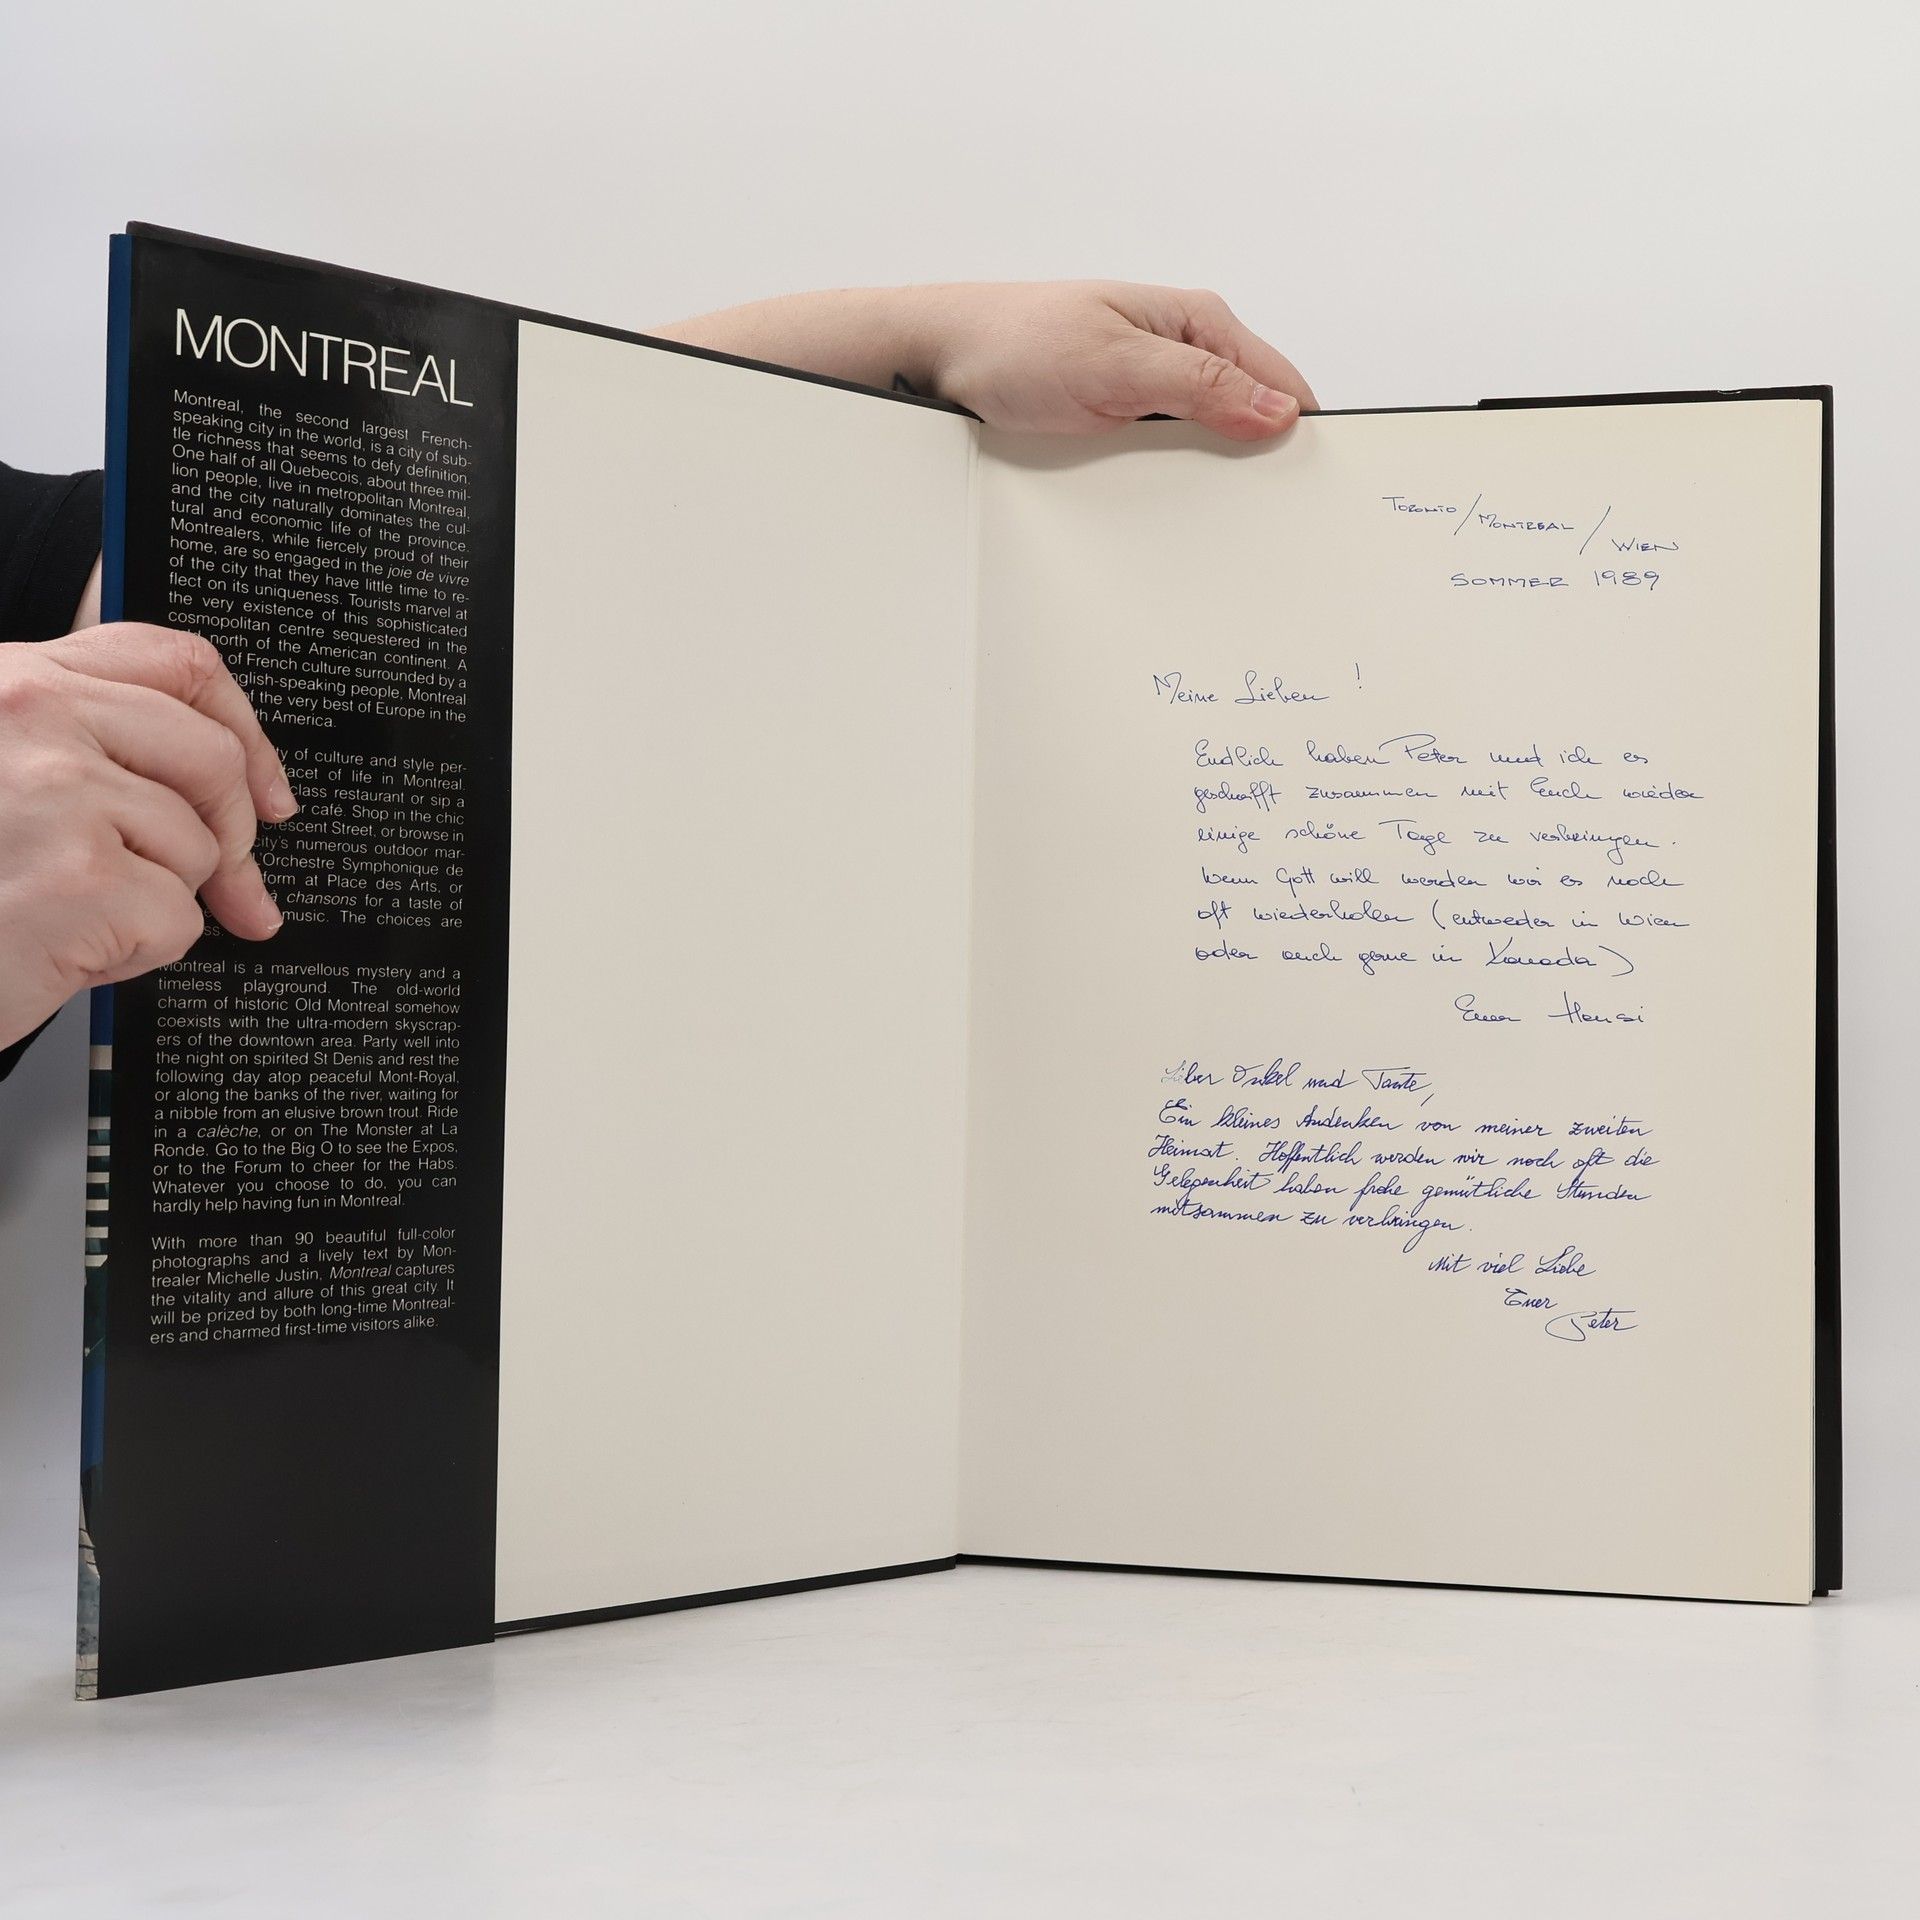 MONTREAL
Montreal, the second largest French-
speaking city in the world, is a city of sub-
tle richness that seems to defy definition.
One half of all Quebecois, about three mil-
lion people, live in metropolitan Montreal,
and the city naturally dominates the cul-
tural and economic life of the province.
Montrealers, while fiercely proud of their
home, are so engaged in the joie de vivre
of the city that they have little time to re-
flect on its uniqueness. Tourists marvel at
the very existence of this sophisticated
cosmopolitan centre sequestered in the
north of the American continent. A
of French culture surrounded by a
English-speaking people, Montreal
of the very best of Europe in the
America.
of culture and style per-
facet of life in Montreal.
class restaurant or sip a
café. Shop in the chic
Crescent Street, or browse in
city's numerous outdoor mar-
L'Orchestre Symphonique de
at Place des Arts, or
à chansons for a taste of
music. The choices are
Montreal is a marvellous mystery and a
timeless playground. The old-world
charm of historic Old Montreal somehow
coexists with the ultra-modern skyscrap-
ers of the downtown area. Party well into
the night on spirited St Denis and rest the
following day atop peaceful Mont-Royal,
or along the banks of the river, waiting for
a nibble from an elusive brown trout. Ride
in a calèche, or on The Monster at La
Ronde. Go to the Big O to see the Expos,
or to the Forum to cheer for the Habs.
Whatever you choose to do, you can
hardly help having fun in Montreal.
With more than 90 beautiful full-color
photographs and a lively text by Mon-
trealer Michelle Justin, Montreal captures
the vitality and allure of this great city. It
will be prized by both long-time Montreal-
ers and charmed first-time visitors alike.
TORONTO/MONTREAL/WIEN
SOMMER 1989
Meine Lieben!
Endlich haben Peter und ich es
geschafft zusammen mit Euch wieder
einige schöne Tage zu verbringen.
Wenn Gott will werden wir es noch
oft wiederholen (entweder in Wien
oder auch gerne in Kanada)
Euer Hansi
Lieber Onkel und Tante,
Ein kleines Andenken von meiner zweiten
Heimat. Hoffentlich werden wir noch oft die
Gelegenheit haben frohe gemütliche Stunden
mitsammen zu verbringen.
Mit viel Liebe
Euer
Peter